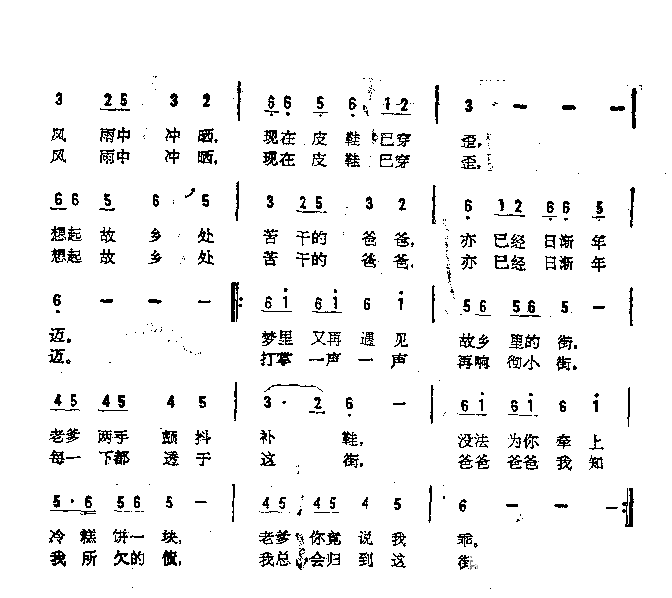 3 25 3 2 | 66 5 6 12 | 3 - - - |
风 雨中 冲 晒, 现在 皮 鞋 已穿 歪,
风 雨中 冲 晒, 现在 皮 鞋 已穿 歪,
66 5 6 5 | 3 25 3 2 | 6 12 66 5 |
想起 故 乡 处 苦 干的 爸 爸, 亦 已经 日渐 年
想起 故 乡 处 苦 干的 爸 爸, 亦 已经 日渐 年
6 - - - :‖ 6i 6i 6 i | 56 56 5 - |
迈。 梦里 又再 遇 见 故乡 里的 街,
迈。 打掌 一声 一 声 再响 彻小 街,
45 45 4 5 | 3· 2 6 - | 6i 6i 6 i |
老爹 两手 颤 抖 补 鞋, 没法 为你 牵 上
每一 下都 透 于 这 街, 爸爸 爸爸 我 知
5·6 56 5 - | 45 45 4 5 | 6 - - - :‖
冷 糕 饼一 块, 老爹 你竟 说 我 乖。
我 所 欠的 债, 我总 会归 到 这 街